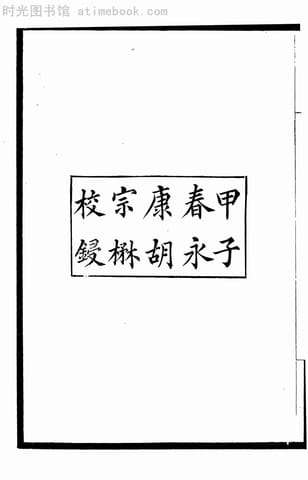 时光图书馆 atimebook.com
甲子
春永
康胡
宗楙
校鋟